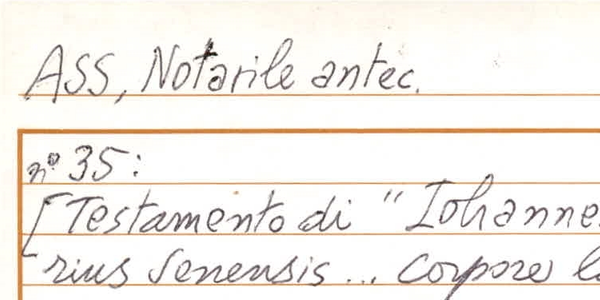 ASS, Notarile antec.
n° 35:
[Testamento di "Iohanne
rius Senensis... corpore